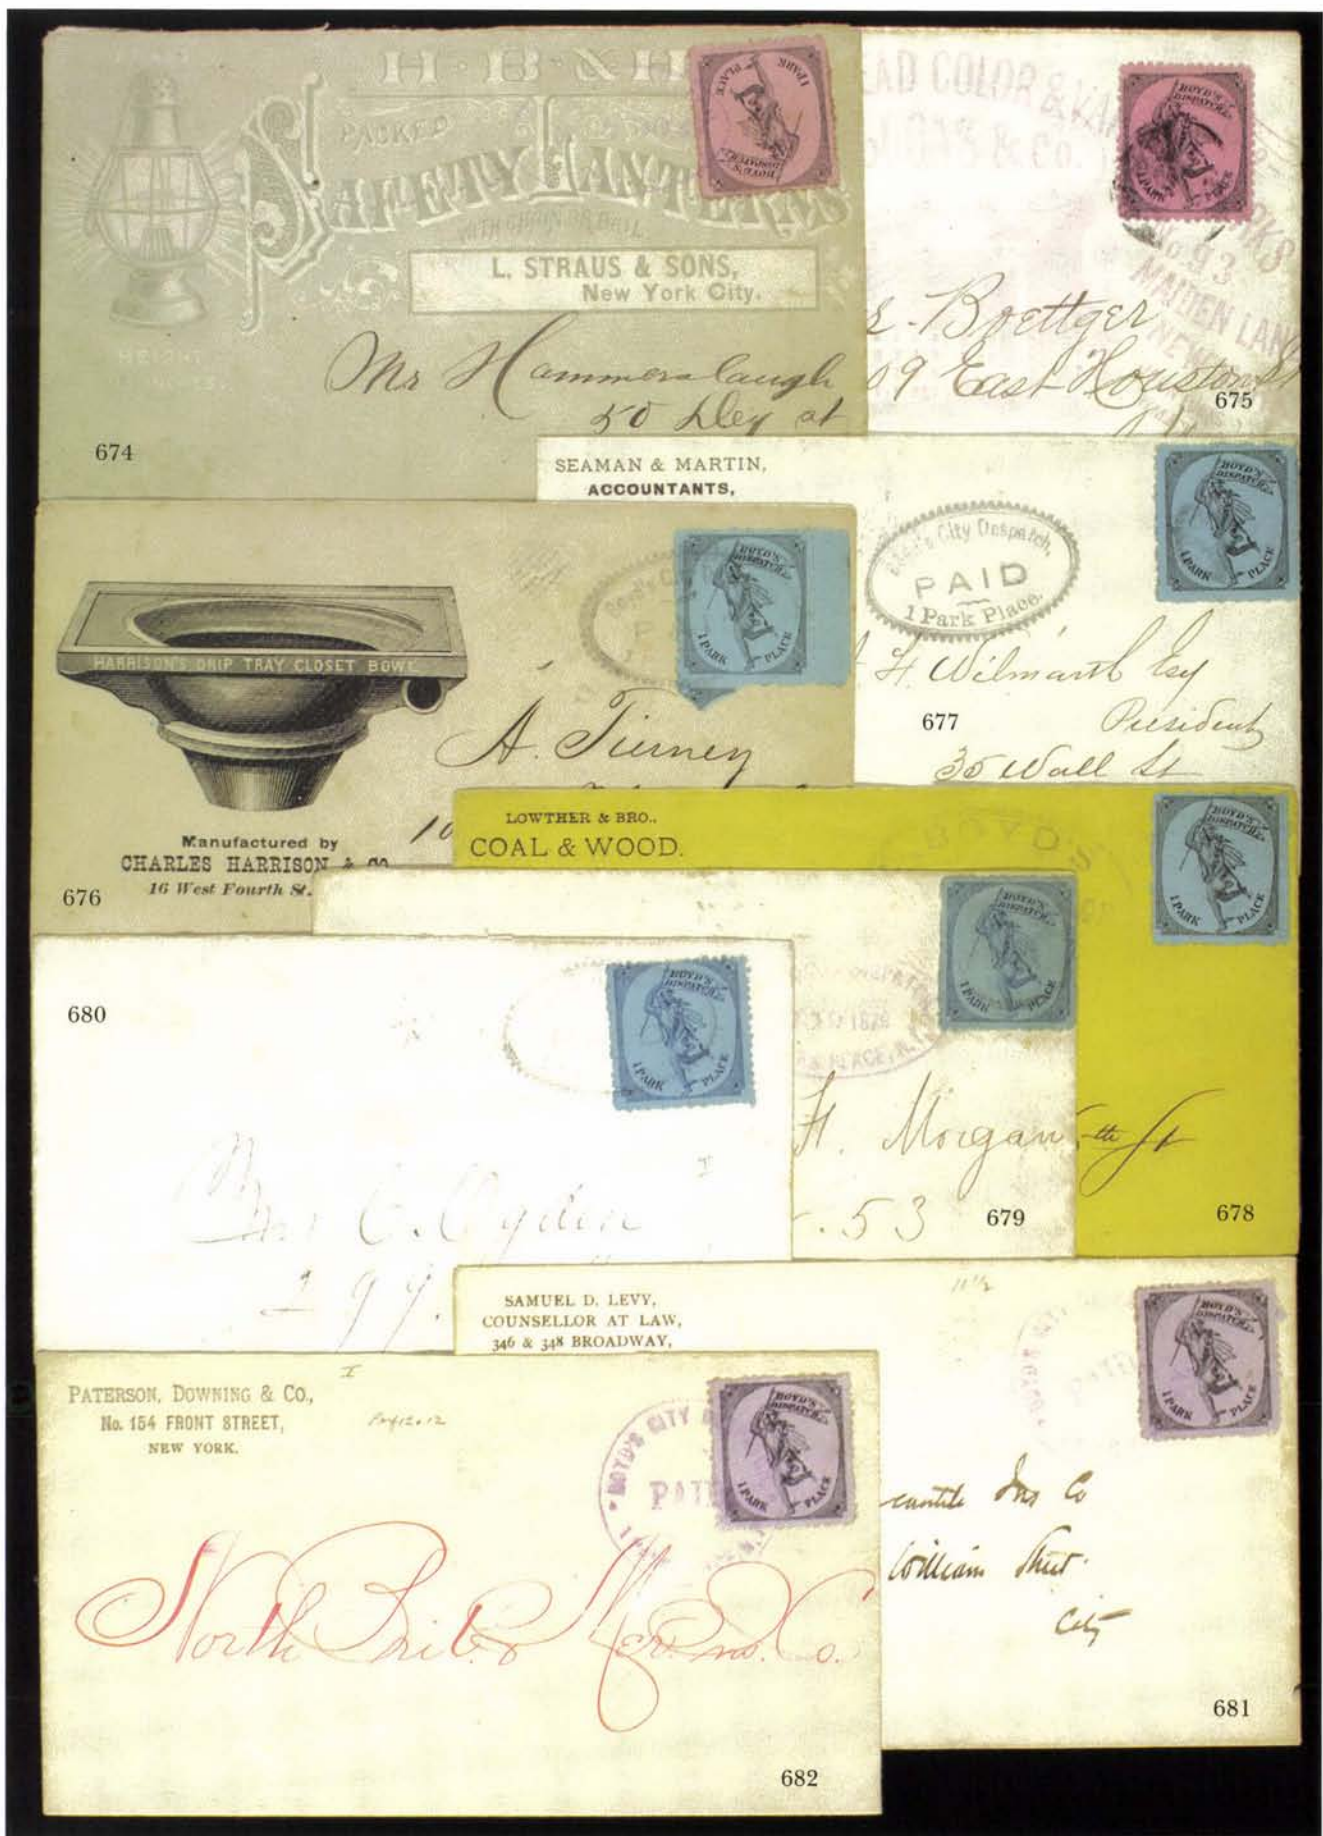 H·B·&H
PACKED
SAFETY LANTERNS
WITH CHAIN OR BAIL.
L. STRAUS & SONS,
New York City.
HEIGHT
INCHES.
1 PARK PLACE
BOYD'S DISPATCH
Mr Hammerslaugh
50 Dey st
674
EAD COLOR & VAR
& Co.
RKS
No. 93
MAIDEN LAN
NEW
BOYD'S DISPATCH
1 PARK PLACE
s. Boettger
09 East Houston St
675
SEAMAN & MARTIN,
ACCOUNTANTS,
Boyd's City Despatch,
PAID
1 Park Place.
BOYD'S DISPATCH
1 PARK PLACE
H. Wilmarth Esq
President
35 Wall St
677
HARRISON'S DRIP TRAY CLOSET BOWL
BOYD'S DISPATCH
1 PARK PLACE
A. Tierney
10
Manufactured by
CHARLES HARRISON & CO
16 West Fourth St.
676
LOWTHER & BRO.,
COAL & WOOD.
BOYD'S
BOYD'S DISPATCH
1 PARK PLACE
th St
678
BOYD'S DISPATCH
1 PARK PLACE
DISPATCH
1878
PLACE, N.Y.
H. Morgan
53
679
680
BOYD'S DISPATCH
1 PARK PLACE
Mrs C. Ogden
199.
SAMUEL D. LEVY,
COUNSELLOR AT LAW,
346 & 348 BROADWAY,
11 1/2
BOYD'S DISPATCH
1 PARK PLACE
cantile Ins Co
William Street
City
681
PATERSON, DOWNING & CO.,
No. 154 FRONT STREET,
NEW YORK.
BOYD'S CITY D
PAID
BOYD'S DISPATCH
1 PARK PLACE
North Brit. & Mer. Ins. Co.
682